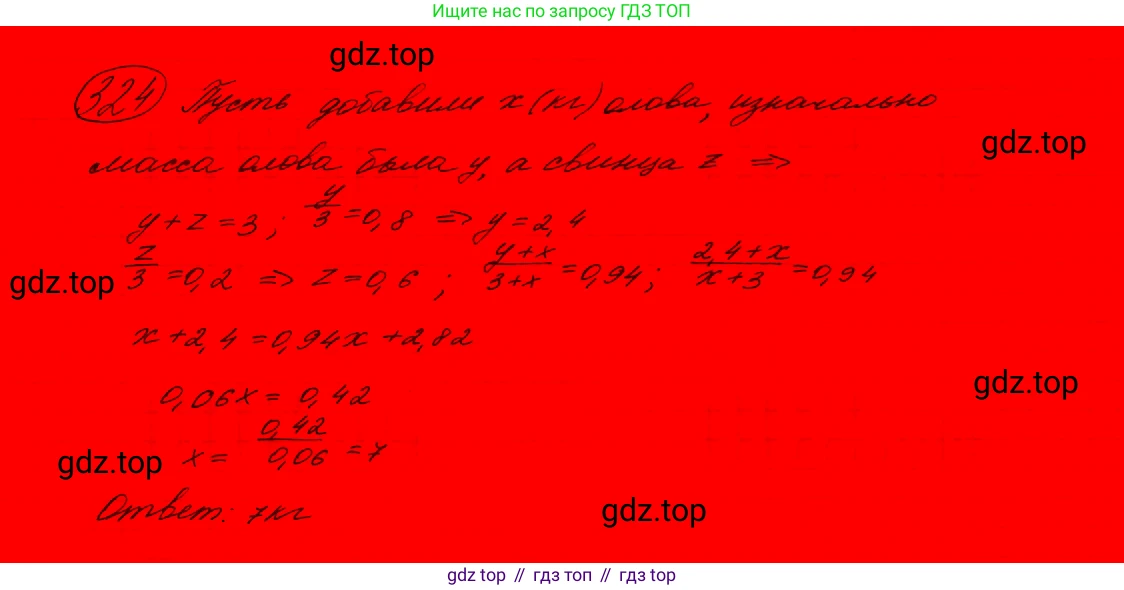 Ищите нас по запросу ГДЗ ТОП
gdz.top
324 Пусть добавили x (кг) олова, изначально
gdz.top
масса олова была y, а свинца z =>
y + z = 3; y/3 = 0,8 => y = 2,4
gdz.top
z/3 = 0,2 => z = 0,6; (y+x)/(3+x) = 0,94; (2,4+x)/(x+3) = 0,94
x + 2,4 = 0,94x + 2,82
gdz.top
0,06x = 0,42
gdz.top
x = 0,42/0,06 = 7
Ответ: 7кг
gdz.top
gdz top // гдз топ // gdz top